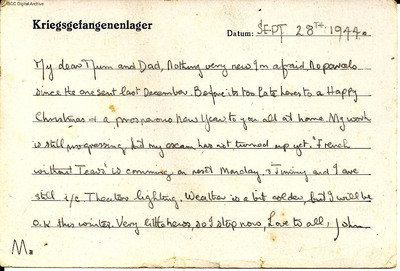 © IBCC Digital Archive
Kriegsgefangenenlager
Datum: SEPT 28TH 1944.
My dear Mum and Dad, Nothing very new I'm afraid, No parcels
since the one sent last December. Before its too late heres to a Happy
Christmas & a prosperous New Year to you all at home. My work
is still progressing, but my exam has not turned up yet. "French
without Tears" is comming on next Monday, & Jimmy and I are
still i/c. Theatre lighting. Weather is a bit colder, but I will be
O.K this winter. Very little news, so I stop now, Love to all, John
M.